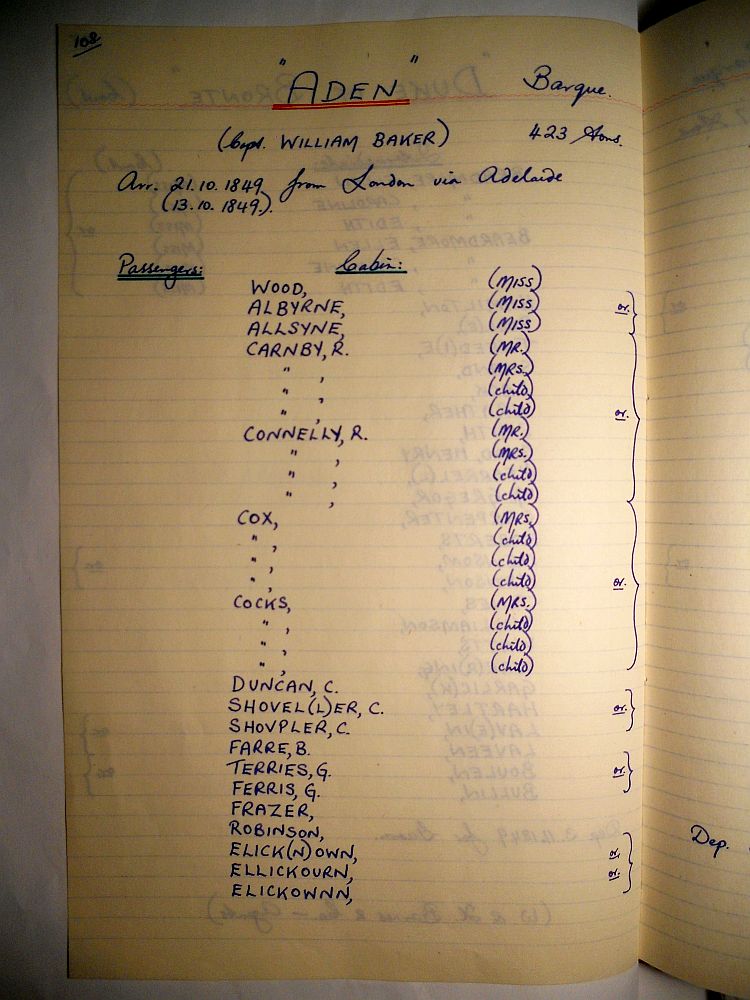 108
"ADEN" Barque.
(Capt. WILLIAM BAKER) 423 tons.
Arr. 21.10.1849 from London via Adelaide
(13.10.1849).
Passengers: Cabin:
WOOD, (MISS)
ALBYRNE, (MISS) or.
ALLSYNE, (MISS)
CARNBY, R. (MR.)
" , (MRS.)
" , (child)
" , (child) or.
CONNELLY, R. (MR.)
" , (MRS.)
" , (child)
" , (child)
COX, (MRS.)
" , (child)
" , (child)
" , (child) or.
COCKS, (MRS.)
" , (child)
" , (child)
" , (child)
DUNCAN, C.
SHOVEL(L)ER, C. or.
SHOVPLER, C.
FARRE, B.
TERRIES, G. or.
FERRIS, G.
FRAZER,
ROBINSON,
ELICK(N)OWN, or.
ELLICKOURN, or.
ELICKOWNN,
Dep.